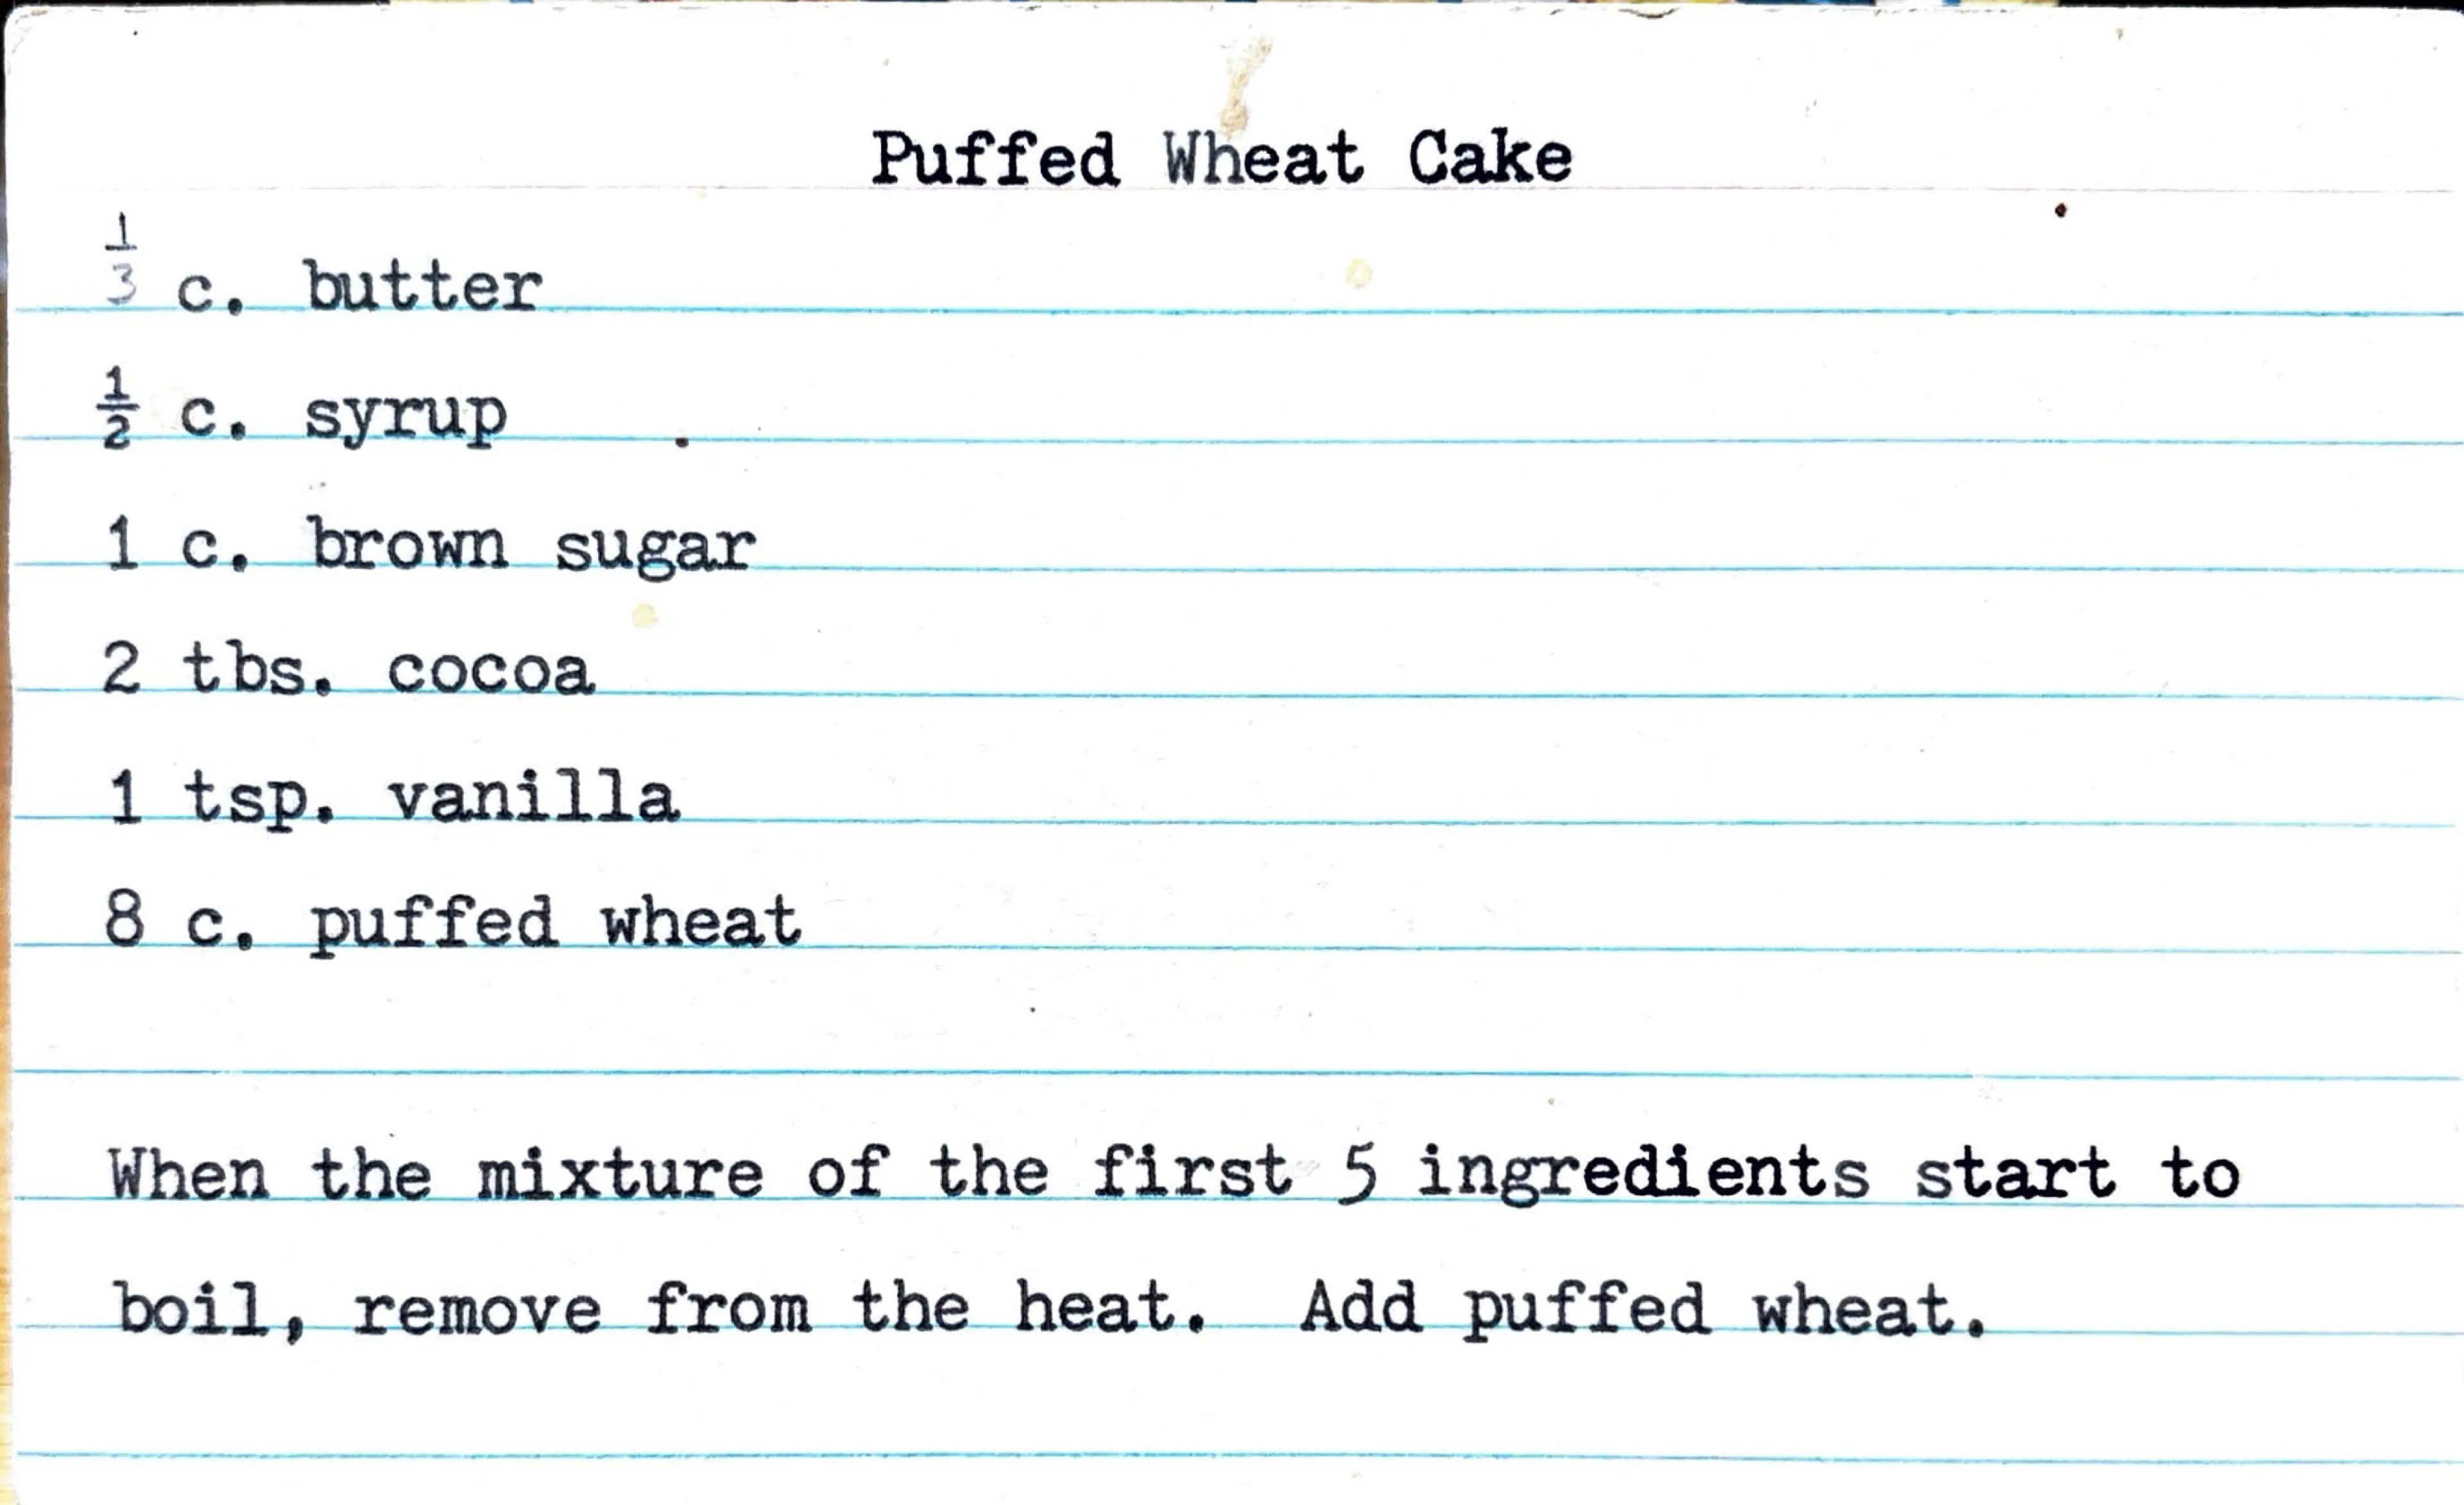 Puffed Wheat Cake
1/3 c. butter
1/2 c. syrup
1 c. brown sugar
2 tbs. cocoa
1 tsp. vanilla
8 c. puffed wheat
When the mixture of the first 5 ingredients start to
boil, remove from the heat.  Add puffed wheat.